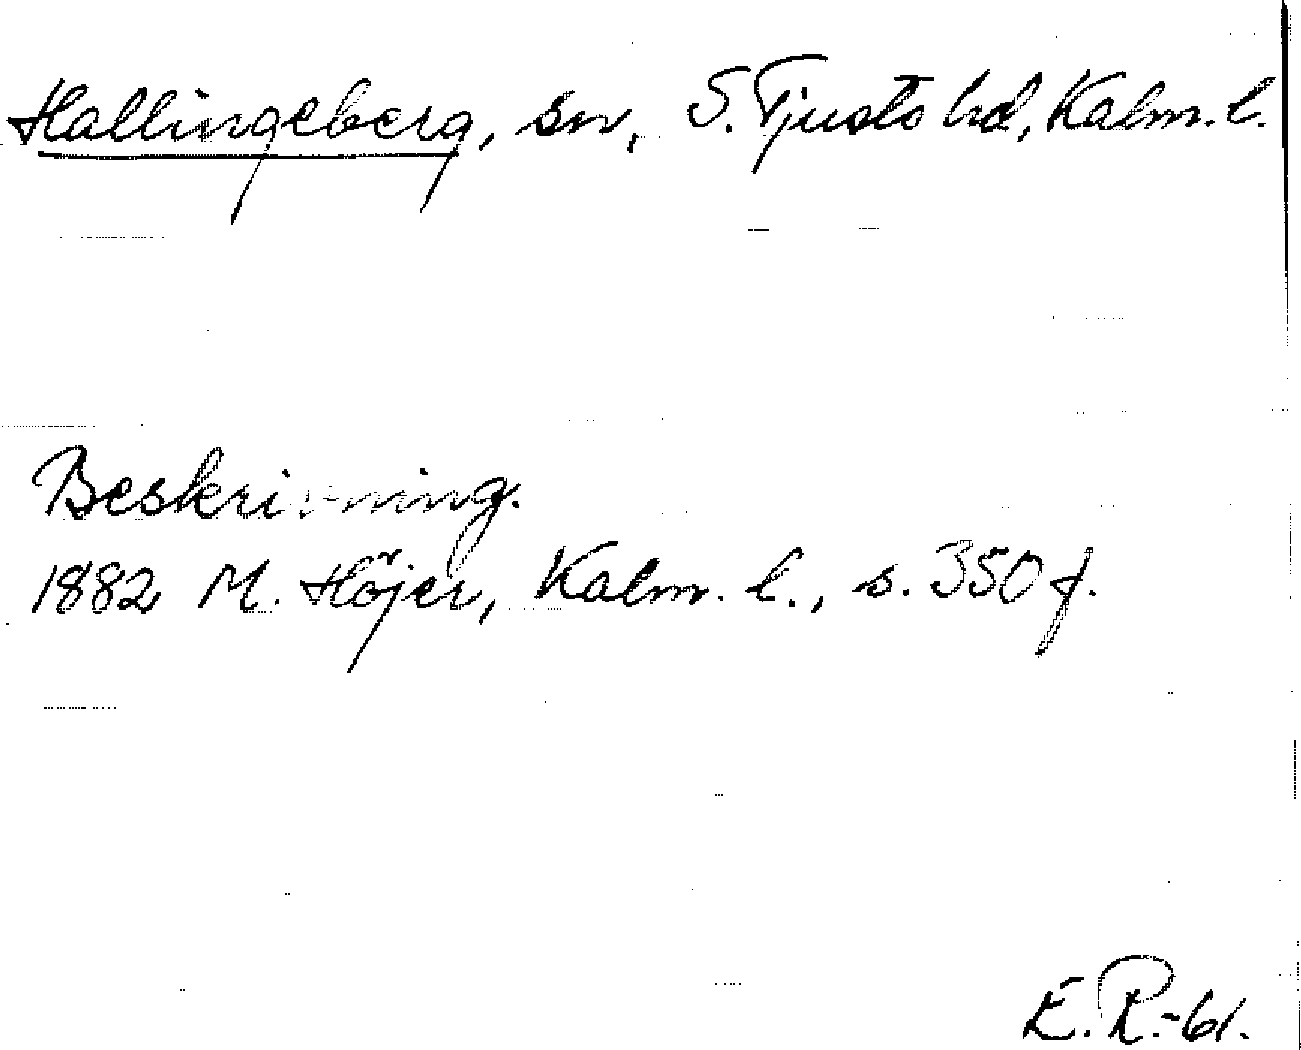 Hallingeberg, sn, S. Tjusts hd, Kalm. l.
Beskrivning.
1882 M. Höjer, Kalm. l., s. 350 f.
E. R.-61.